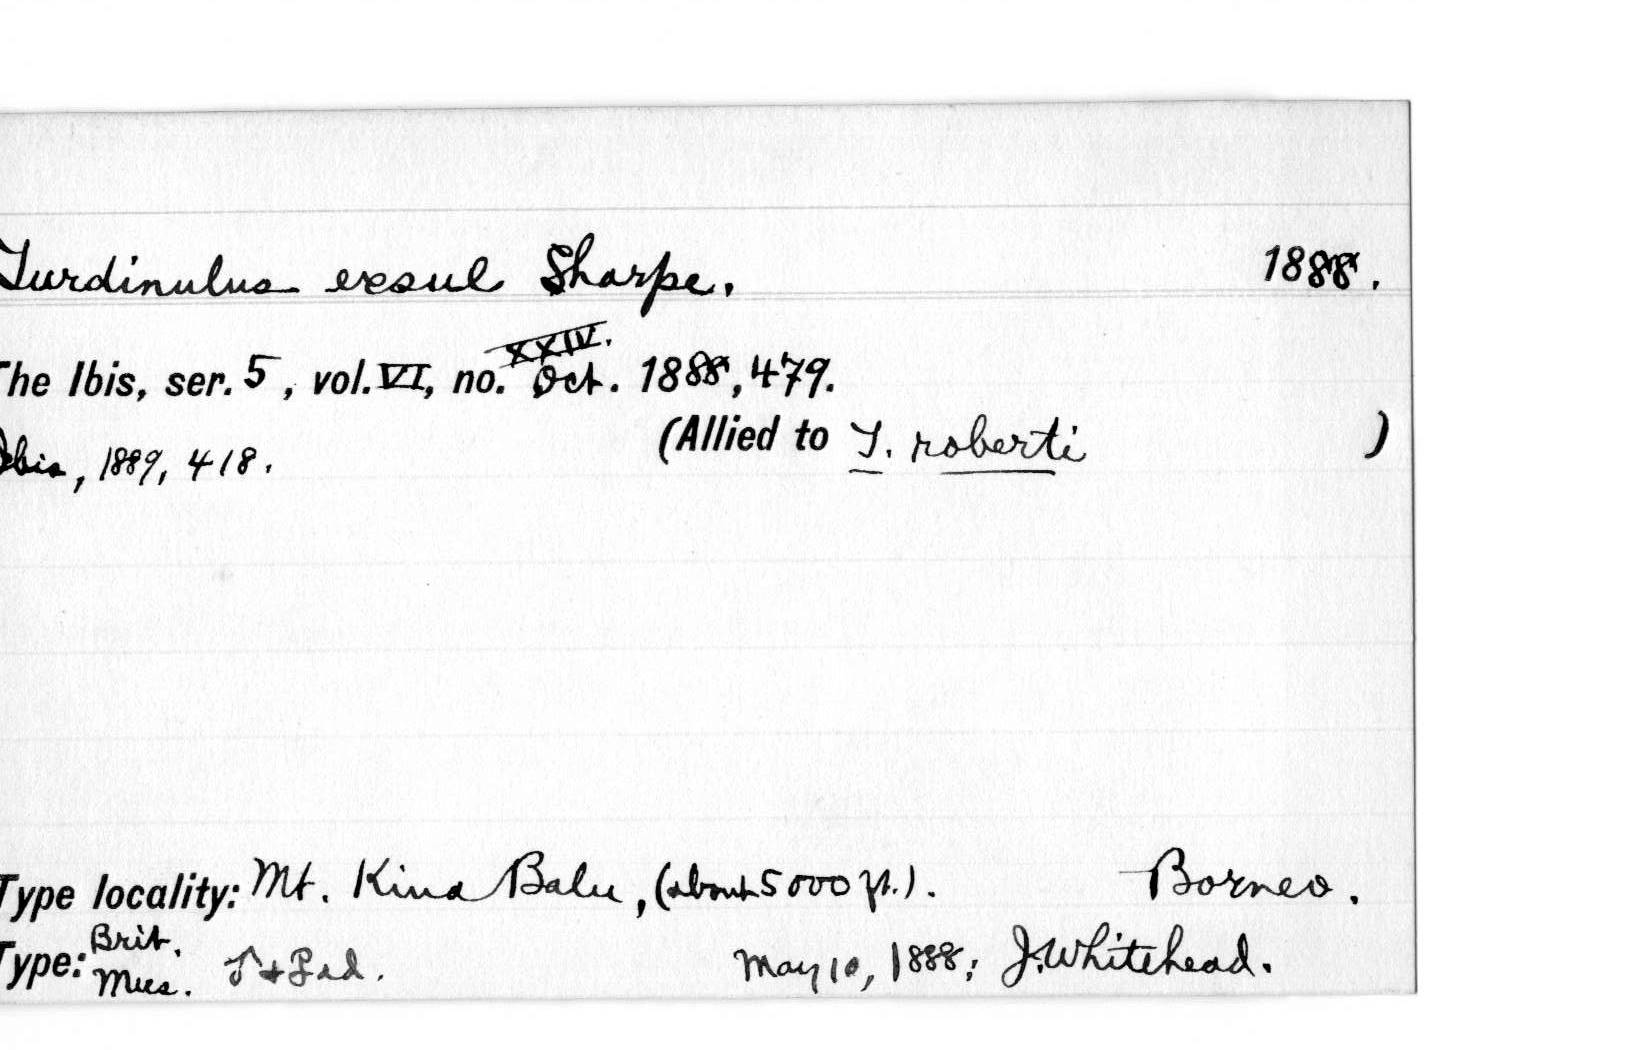 Turdinulus exsul Sharpe. 1888.
XXIV.
The Ibis, ser. 5, vol. VI, no. Oct. 1888, 479.
(Allied to T. roberti )
Ibis, 1889, 418.
Type locality: Mt. Kina Balu, (about 5000 ft.). Borneo.
Type: Brit. Mus. ad. May 10, 1888; J. Whitehead.